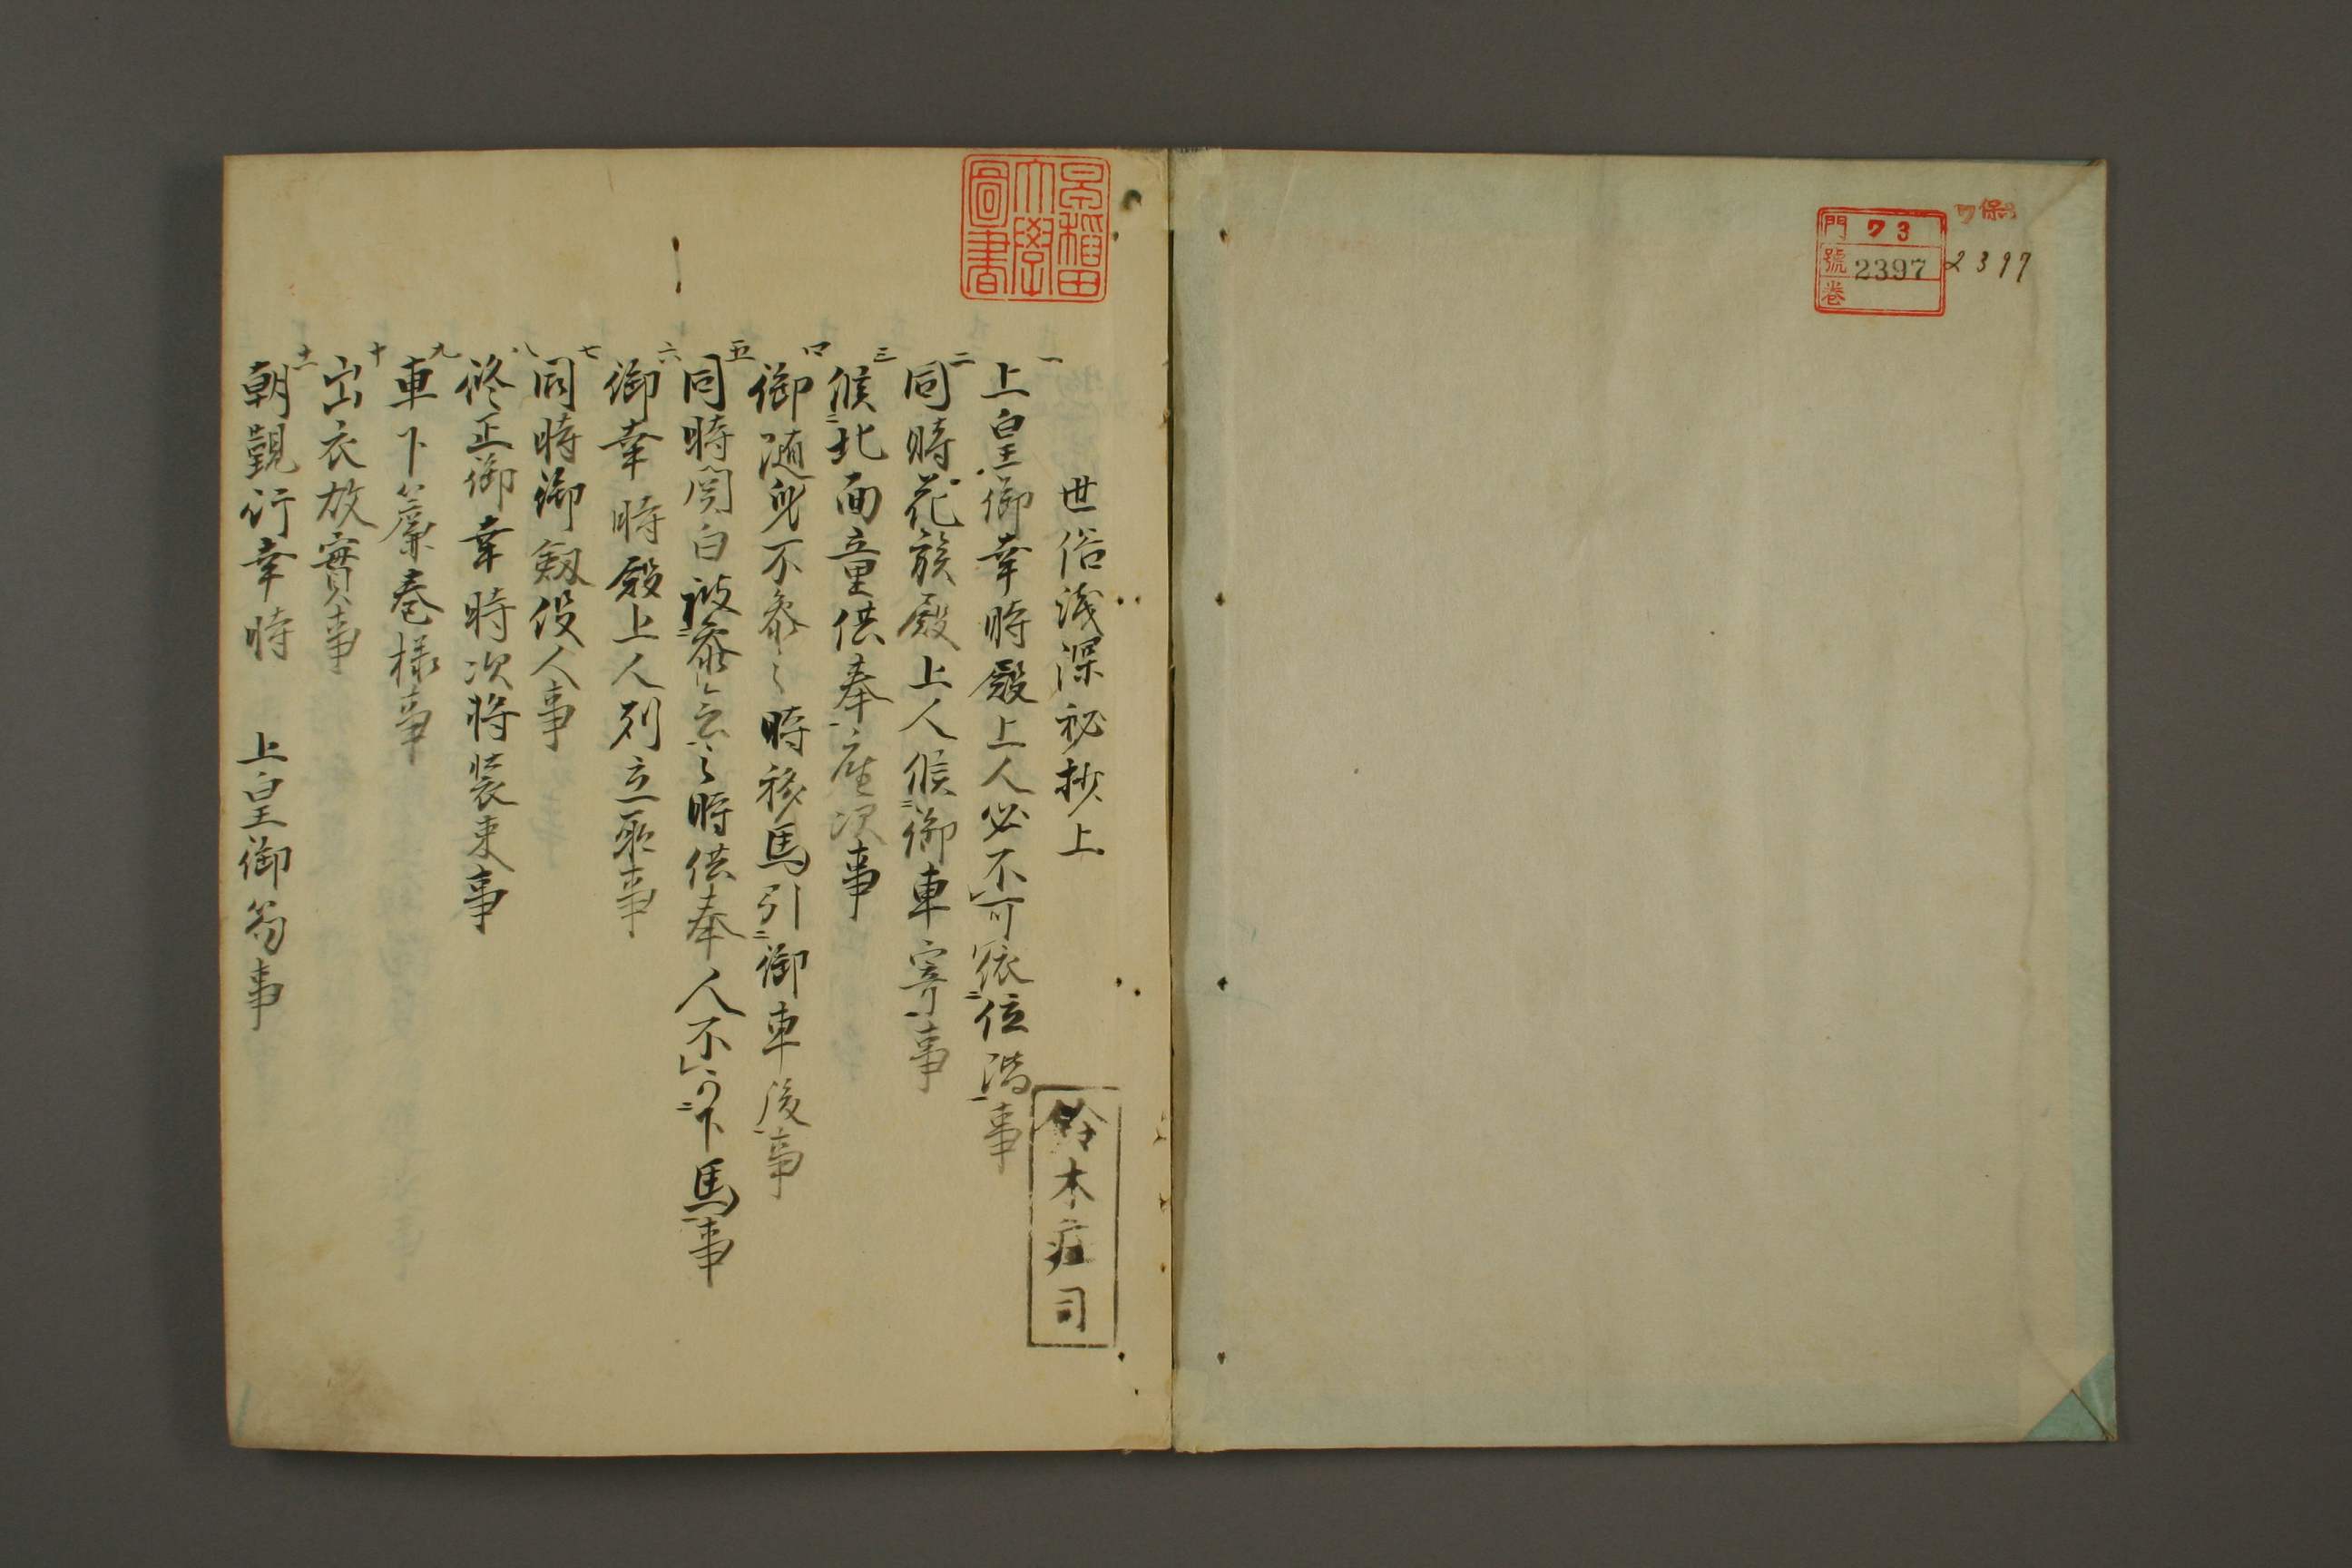 ワ保
門 ワ3
號 2397
卷
2397
早稲田大學圖書
世俗浅深秘抄上
鈴木庄司
一 上皇御幸時殿上人必不可依位階事
二 同時花族殿上人候御車寄事
三 候北面童供奉座次事
四 御随身不参之時移馬引御車後事
五 同時関白被参会之時供奉人不可下馬事
六 御幸時殿上人列立所事
七 同時御剱役人事
八 修正御幸時次将装束事
九 車下簾巻様事
十 出衣放實事
十一 朝覲行幸時 上皇御笏事